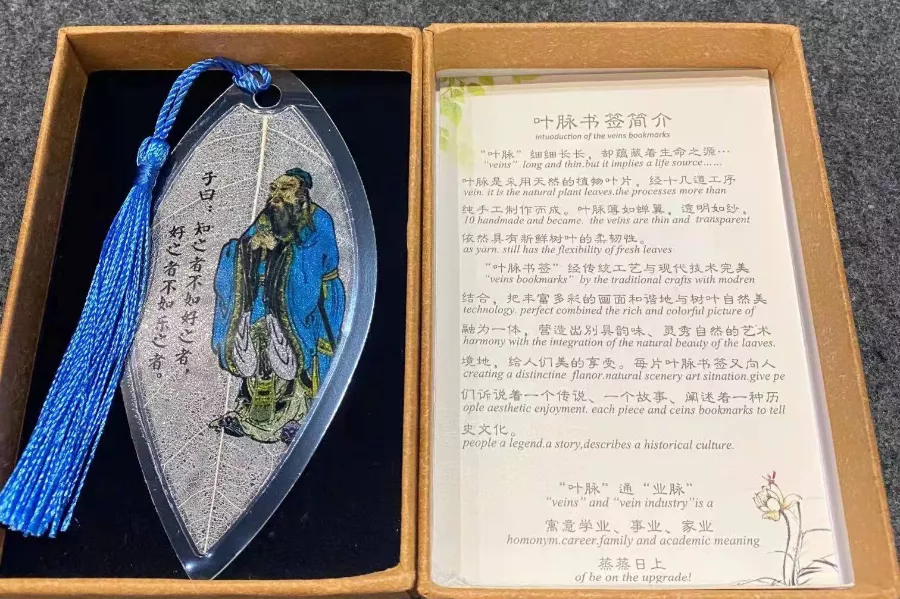 子曰：知之者不如好之者，
好之者不如乐之者。
叶脉书签简介
intuoduction of the veins bookmarks
“叶脉”细细长长，却蕴藏着生命之源…
“veins” long and thin.but it implies a life source……
叶脉是采用天然的植物叶片，经十几道工序
vein. it is the natural plant leaves.the processes more than
纯手工制作而成。叶脉薄如蝉翼，透明如纱，
10 handmade and became. the veins are thin and transparent
依然具有新鲜树叶的柔韧性。
as yarn. still has the flexibility of fresh leaves
“叶脉书签”经传统工艺与现代技术完美
“veins bookmarks” by the traditional crafts with modren
结合，把丰富多彩的画面和谐地与树叶自然美
technology. perfect combined the rich and colorful picture of
融为一体，营造出别具韵味、灵秀自然的艺术
harmony with the integration of the natural beauty of the laaves.
境地，给人们美的享受。每片叶脉书签又向人
creating a distinctine flanor.natural scenery art sitnation.give pe
们诉说着一个传说、一个故事、阐述着一种历
ople aesthetic enjoyment. each piece and ceins bookmarks to tell
史文化。
people a legend.a story,describes a historical culture.
“叶脉”通“业脉”
“veins” and “vein industry”is a
寓意学业、事业、家业
homonym.career.family and academic meaning
蒸蒸日上
of be on the upgrade!